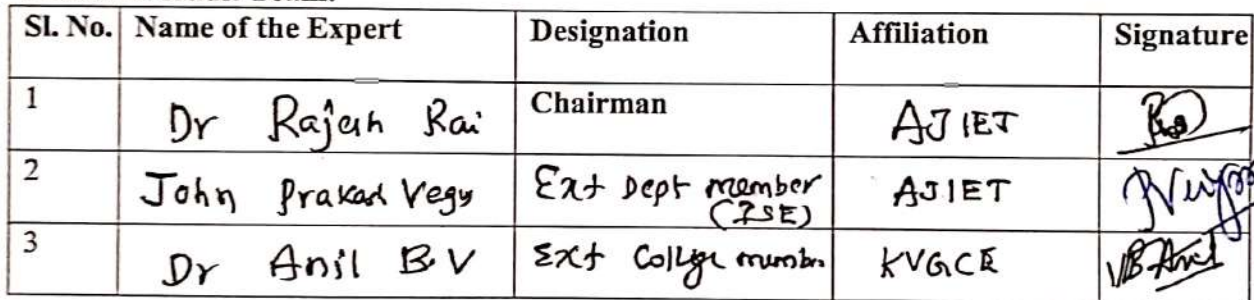 Sl. No. Name of the Expert Designation Affiliation Signature
1 Dr Rajesh Rai Chairman AJIET
2 John Prakash Vegus Ext Dept member (ISE) AJIET
3 Dr Anil B.V Ext College member KVGCE